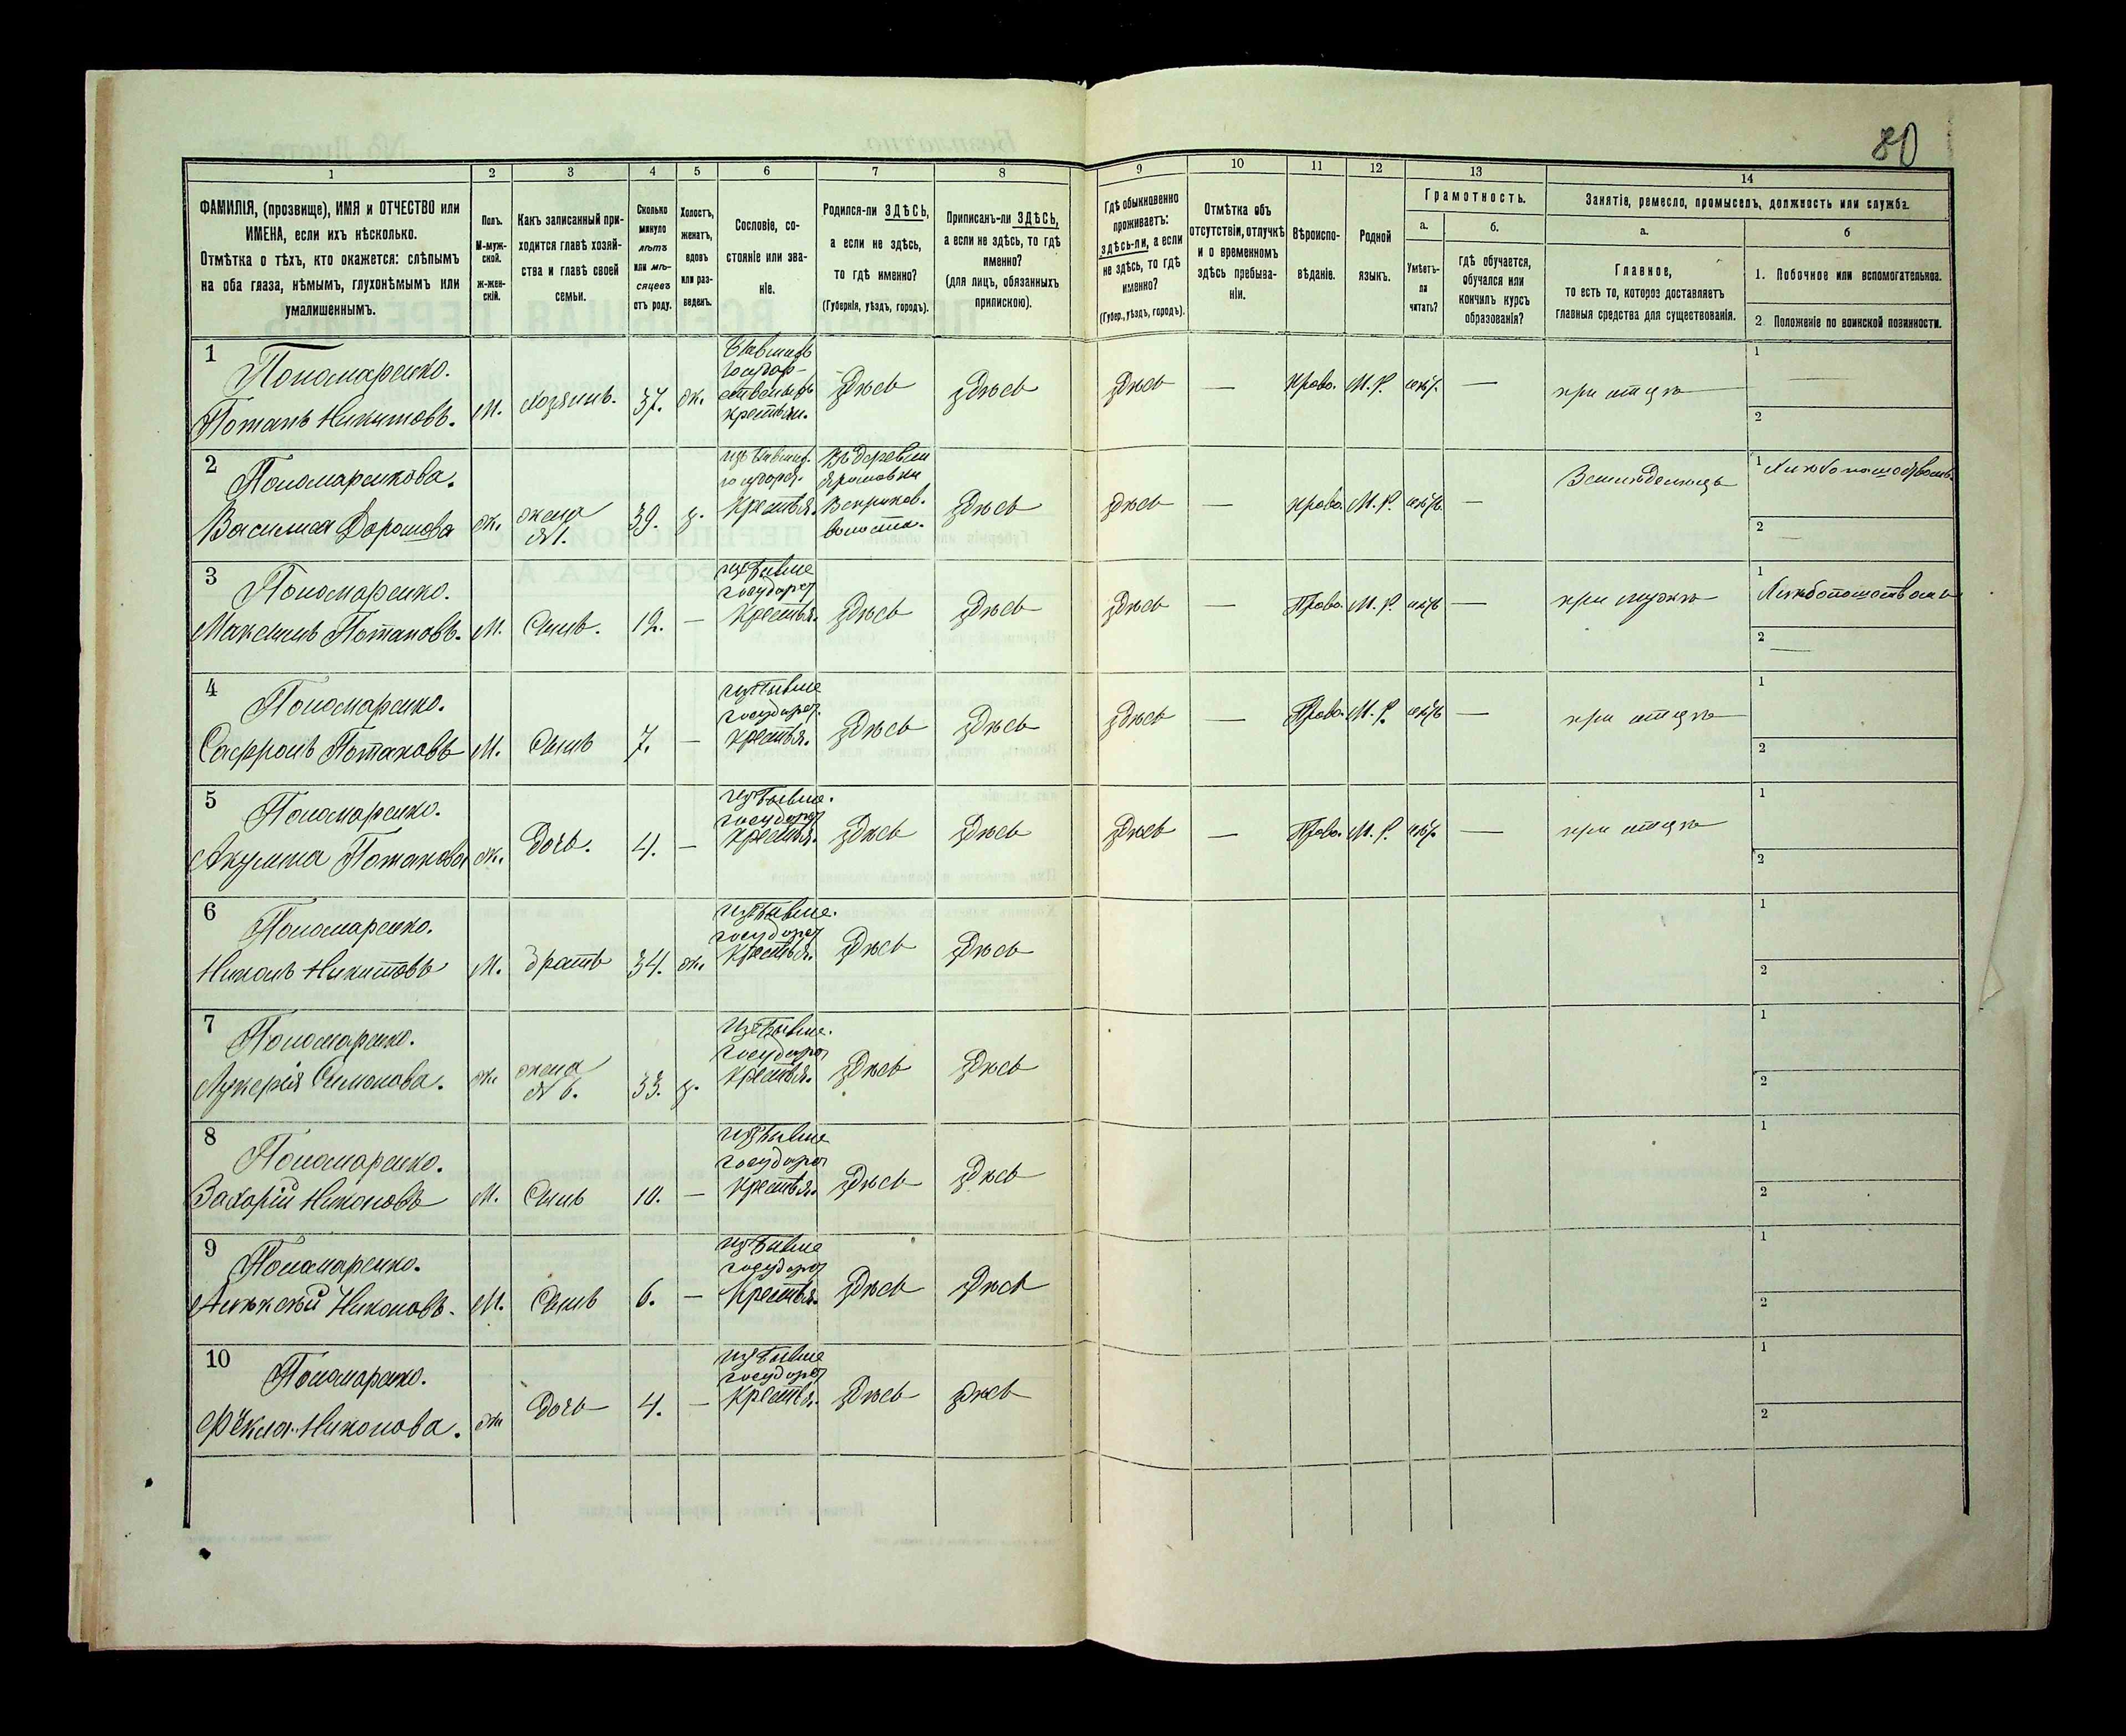 80
1
2
3
4
5
6
7
8
9
10
11
12
13
14
ФАМИЛІЯ, (прозвище), ИМЯ и ОТЧЕСТВО или
ИМЕНА, если ихъ нѣсколько.
Отмѣтка о тѣхъ, кто окажется: слѣпымъ
на оба глаза, нѣмымъ, глухонѣмымъ или
умалишеннымъ.
Полъ.
М-муж-
ской.
ж-жен-
скій.
Какъ записанный при-
ходится главѣ хозяй-
ства и главѣ своей
семьи.
Сколько
минуло
лѣтъ
или мѣ-
сяцевъ
отъ роду.
Холостъ,
женатъ,
вдовъ
или раз-
веденъ.
Сословіе, со-
стояніе или зва-
ніе.
Родился-ли ЗДѢСЬ,
а если не здѣсь,
то гдѣ именно?
(Губернія, уѣздъ, городъ).
Приписанъ-ли ЗДѢСЬ,
а если не здѣсь, то гдѣ
именно?
(для лицъ, обязанныхъ
припискою).
Гдѣ обыкновенно
проживаетъ:
здѣсь-ли, а если
не здѣсь, то гдѣ
именно?
(Губер., уѣздъ, городъ).
Отмѣтка объ
отсутствіи, отлучкѣ
и о временномъ
здѣсь пребыва-
ніи.
Вѣроиспо-
вѣданіе.
Родной
языкъ.
Грамотность.
а.
Умѣетъ-
ли
читать?
б.
гдѣ обучается,
обучался или
кончилъ курсъ
образованія?
Занятіе, ремесло, промыселъ, должность или служба.
а.
Главное,
то есть то, которое доставляетъ
главныя средства для существованія.
б
1. Побочное или вспомогательное.
2. Положеніе по воинской повинности.
1
Пономаренко.
Потапъ Никитовъ.
М.
хозяинъ.
37.
ж.
здѣсь
здѣсь
здѣсь
—
Право.
М. Р.
—
при отцѣ
1
2
2
Пономаренкова.
Василиса
ж.
жена
№ 1.
39.
з.
крестья.
Въ деревни
волости.
здѣсь
здѣсь
—
Право.
М. Р.
—
1
2
3
Пономаренко.
Максимъ Потаповъ.
М.
Сынъ.
12.
—
крестья.
здѣсь
здѣсь
здѣсь
—
Право.
М. Р.
—
при мужѣ
1
2
4
Пономаренко.
Сафронъ Потаповъ
М.
Сынъ
7.
—
крестья.
здѣсь
здѣсь
здѣсь
—
Право.
М. Р.
—
при отцѣ
1
2
5
Пономаренко.
Акулина Потапова
ж.
Дочь.
4.
—
крестья.
здѣсь
здѣсь
здѣсь
—
Право.
М. Р.
—
при отцѣ
1
2
6
Пономаренко.
Никонъ Никитовъ
М.
братъ
34.
ж.
крестья.
здѣсь
здѣсь
1
2
7
Пономаренко.
Лукерія Симонова.
ж.
жена
№ 6.
33.
з.
крестья.
здѣсь
здѣсь
1
2
8
Пономаренко.
Захарій Никоновъ
М.
Сынъ
10.
—
крестья.
здѣсь
здѣсь
1
2
9
Пономаренко.
Алексѣй Никоновъ.
М.
Сынъ
6.
—
крестья.
здѣсь
здѣсь
1
2
10
Пономаренко.
Фёкла Никонова.
ж
Дочь
4.
—
крестья.
здѣсь
здѣсь
1
2